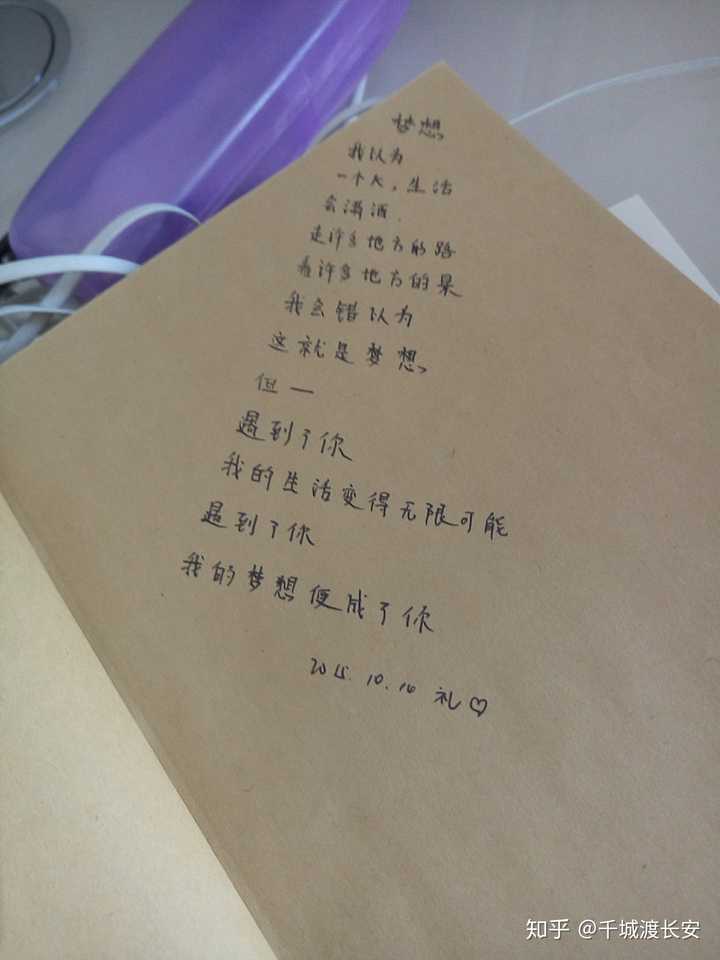 梦想
我认为
一个人，生活
会潇洒.
走许多地方的路
看许多地方的景
我会错认为
这就是梦想
但一
遇到了你
我的生活变得无限可能
遇到了你
我的梦想便成了你
2015.10.10 礼♡
知乎 @千城渡长安